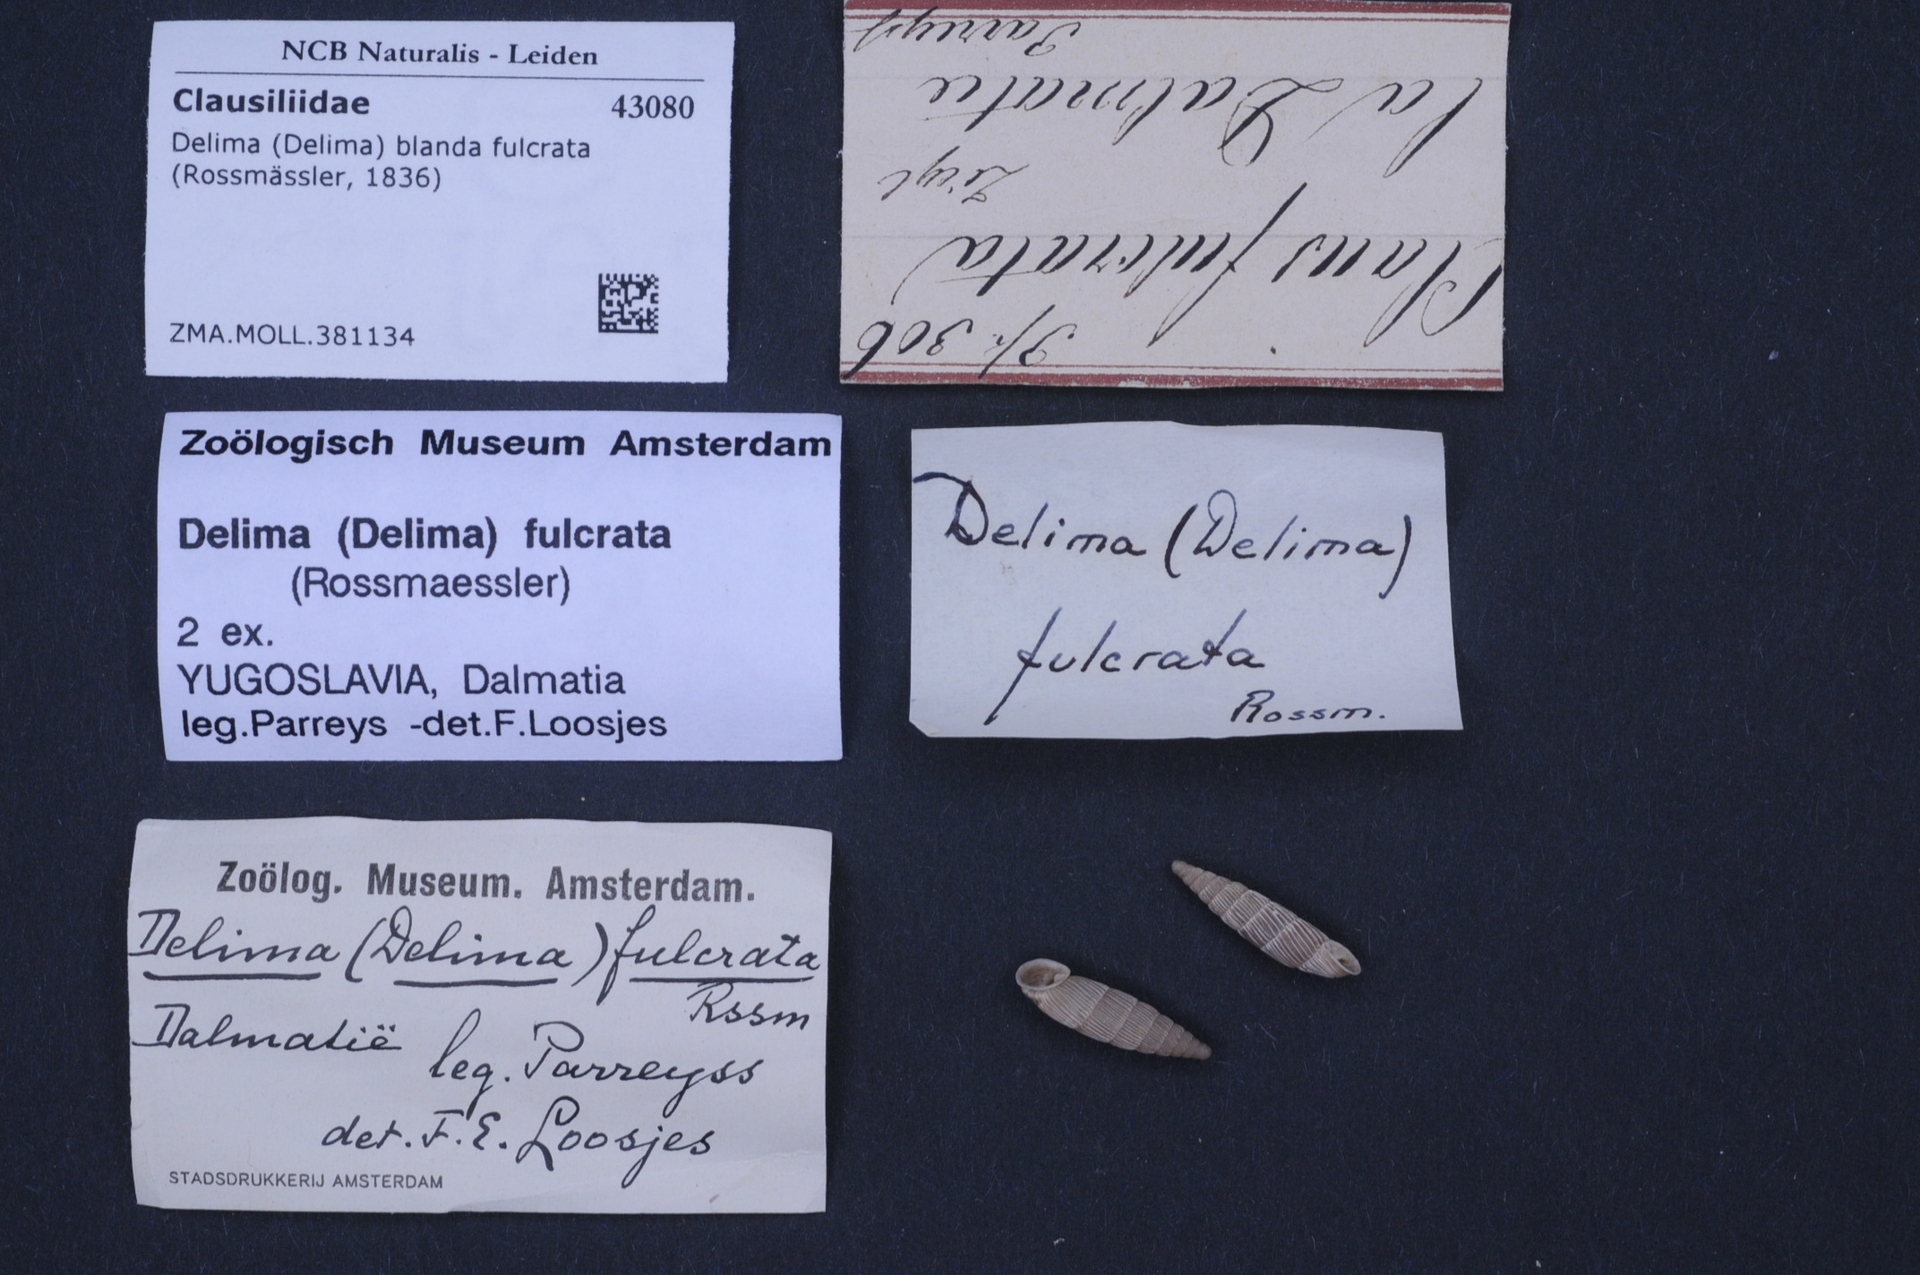 NCB Naturalis - Leiden
Clausiliidae 43080
Delima (Delima) blanda fulcrata
(Rossmässler, 1836)
ZMA.MOLL.381134
306
Claus fulcrata
Zieg
la Dalmatie
Parreyss
Zoölogisch Museum Amsterdam
Delima (Delima) fulcrata
(Rossmaessler)
2 ex.
YUGOSLAVIA, Dalmatia
leg.Parreys -det.F.Loosjes
Delima (Delima)
fulcrata
Rossm.
Zoölog. Museum. Amsterdam.
Delima (Delima) fulcrata
Rssm
Dalmatië
leg. Parreyss
det. F. E. Loosjes
STADSDRUKKERIJ AMSTERDAM